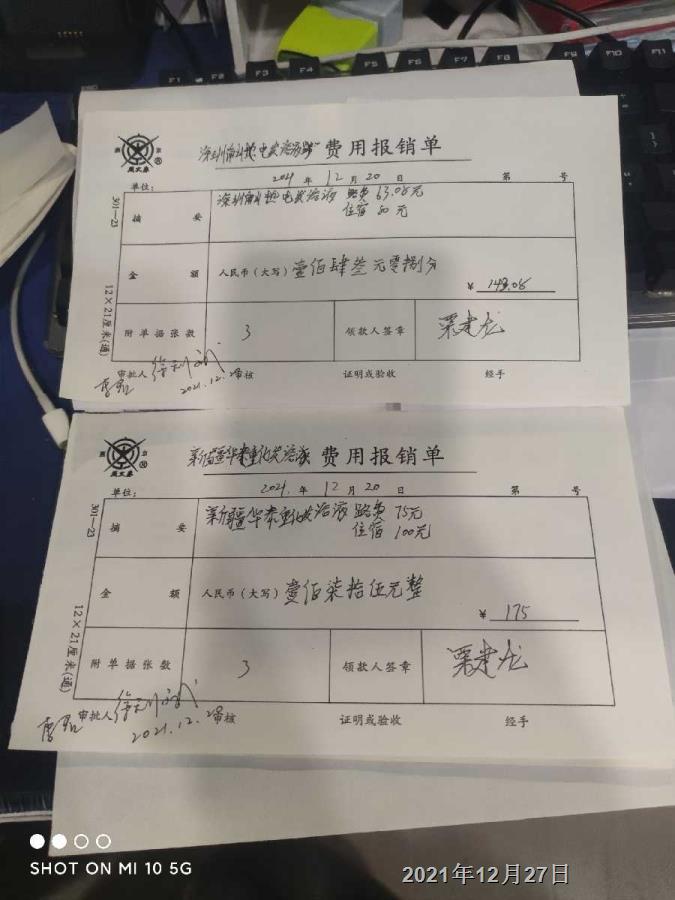 F1 F2 F3 F4 F5 F6 F7 F8 F9 F10 F11
燕 京
周文泰
深圳市斗艳电炭溶液 费用报销单
单位: 2021 年 12 月 20 日 第 号
301—23
12×21厘米(通)
摘 要
路费 63.08元
住宿 80元
金 额 人民币(大写) 壹佰肆叁元零捌分
¥ 143.08
附单据张数 3 领款人签章 栗建龙
审批人 审核 证明或验收 经手
2021.12.28
燕 京
新疆华泰重化炭溶液 费用报销单
单位: 2021. 年 12 月 20 日 第 号
301—23
12×21厘米(通)
摘 要
新疆华泰重化炭溶液 路费 75元
住宿 100元
金 额 人民币(大写) 壹佰柒拾伍元整
¥ 175
附单据张数 3 领款人签章 栗建龙
审批人 审核 证明或验收 经手
2021.12.28
SHOT ON MI 10 5G
2021年12月27日